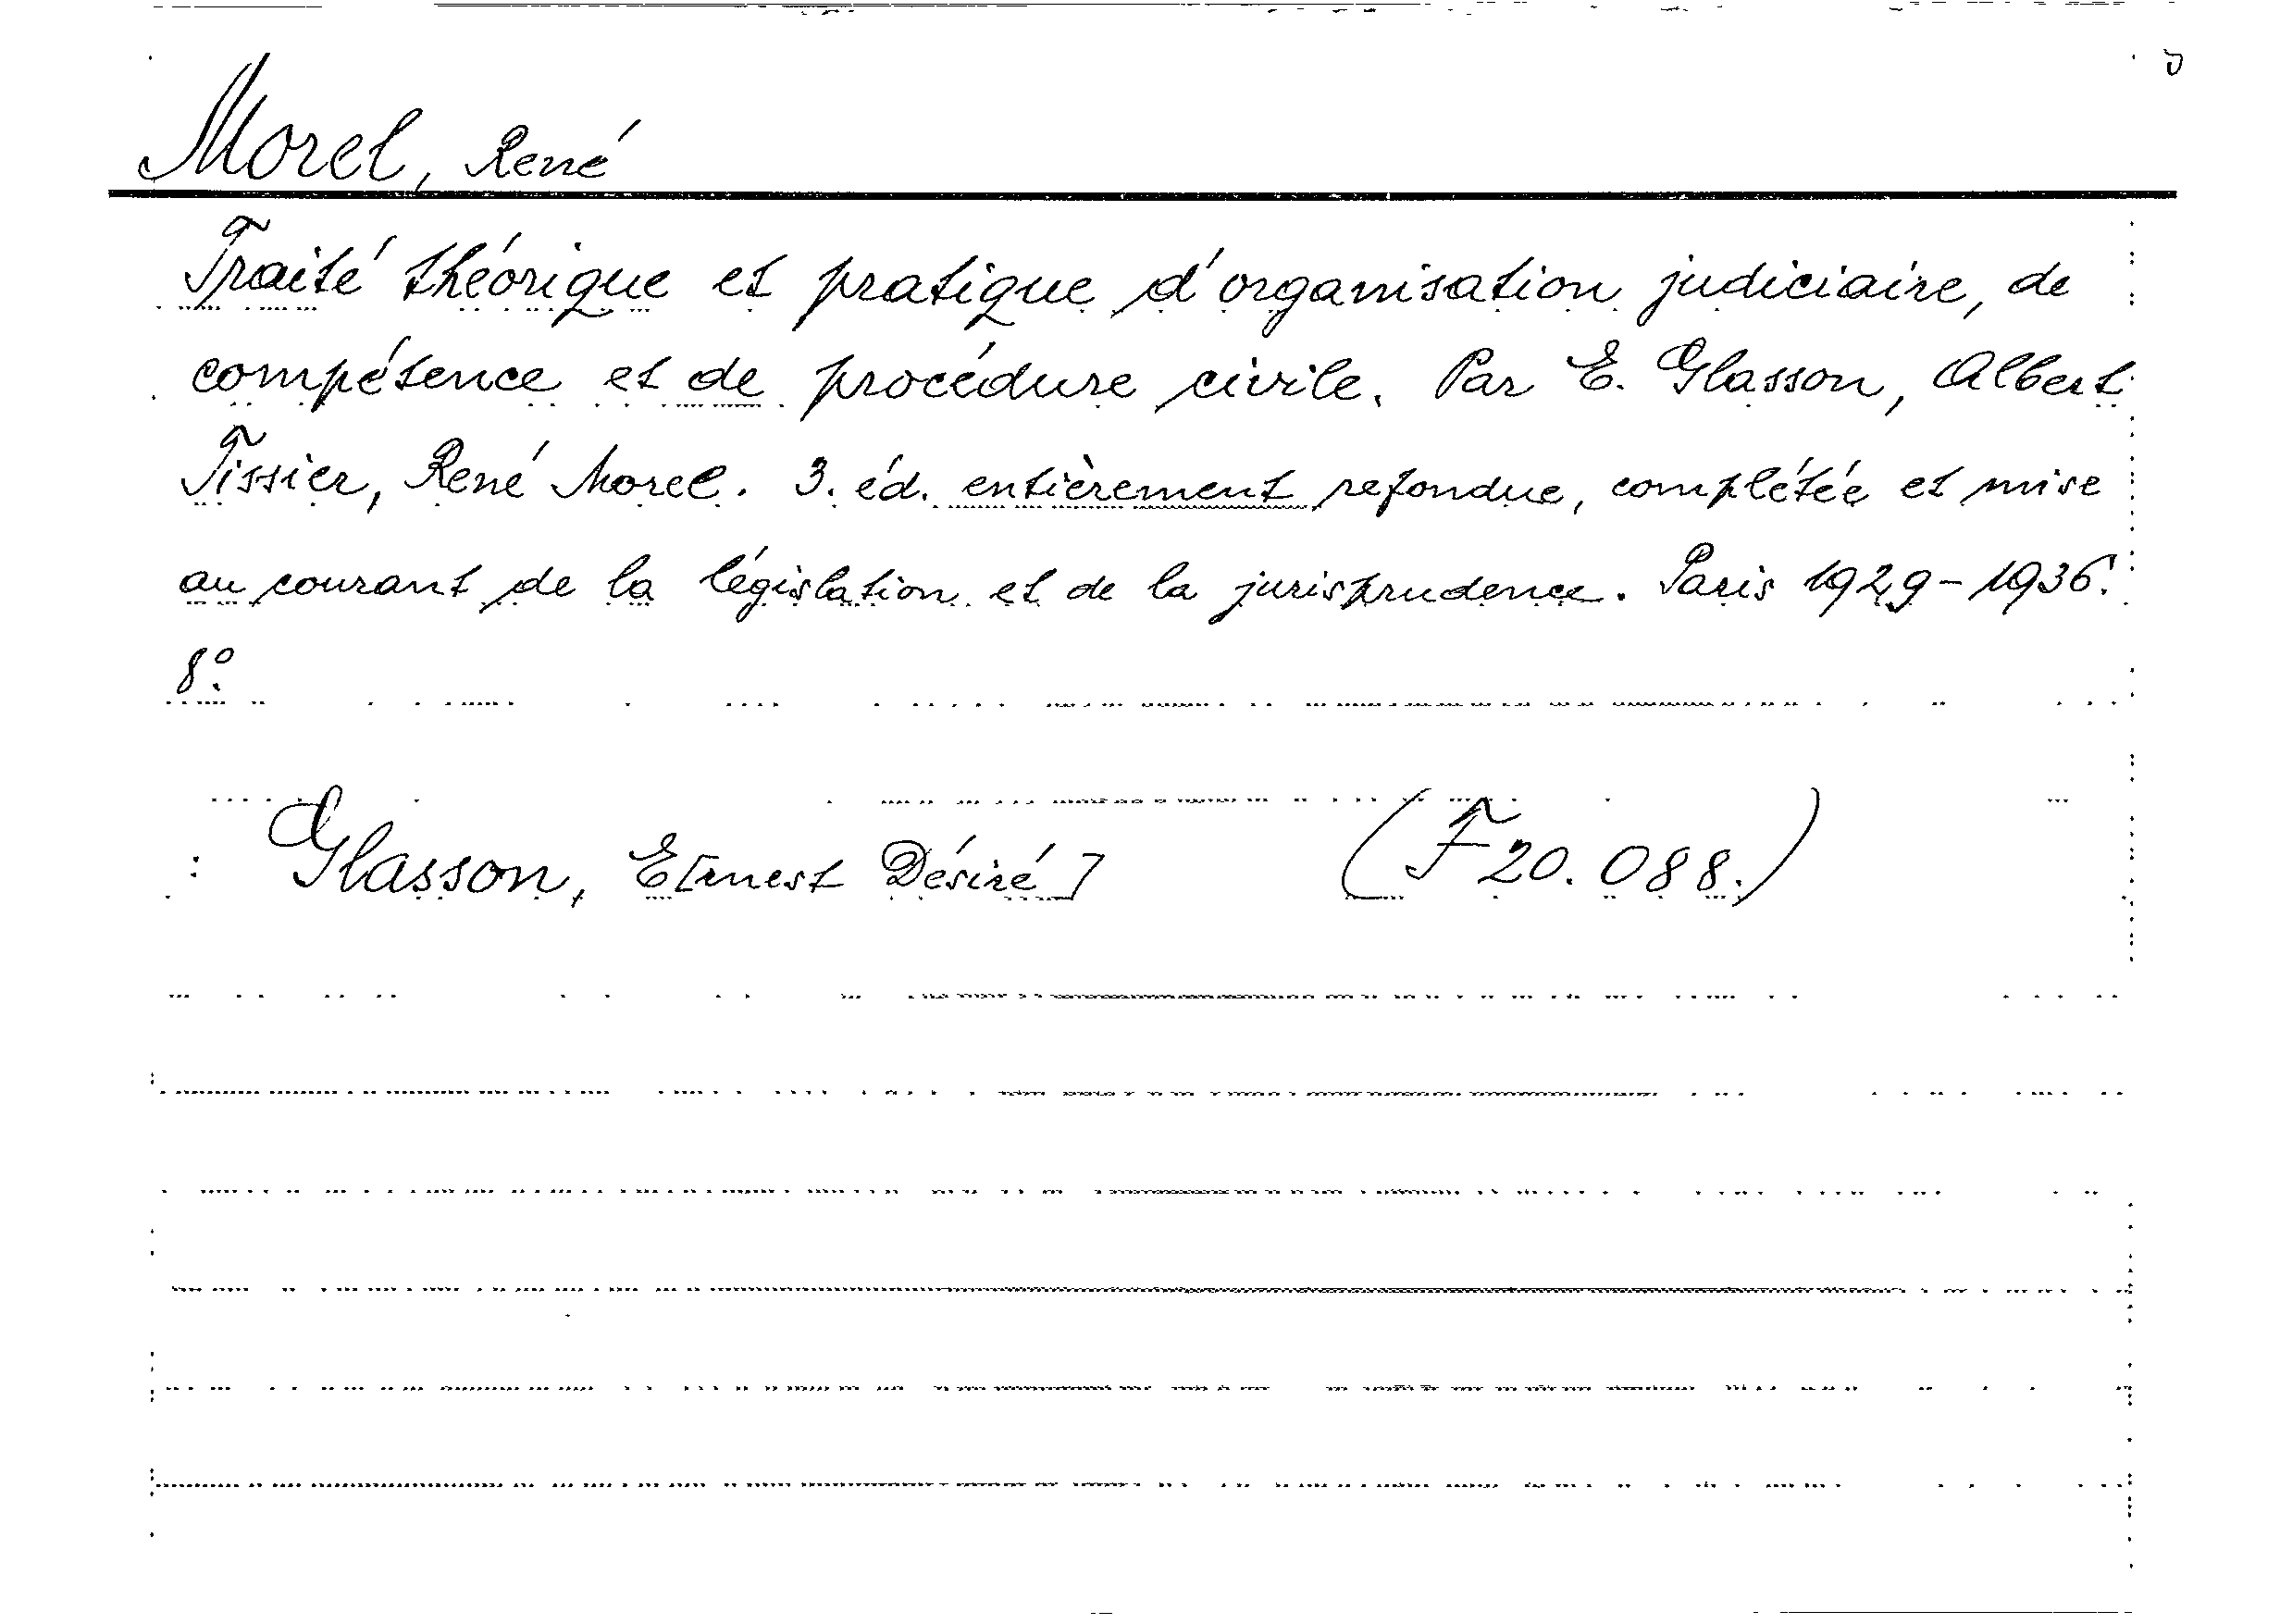 Morel, René
Traité théorique et pratique d'organisation judiciaire, de
compétence et de procédure civile. Par E. Glasson, Albert
Tissier, René Morel. 3. éd. entièrement refondue, complétée et mise
au courant de la législation et de la jurisprudence. Paris 1929-1936.
8°.
: Glasson, E[rnest Désiré] (F 20.088.)